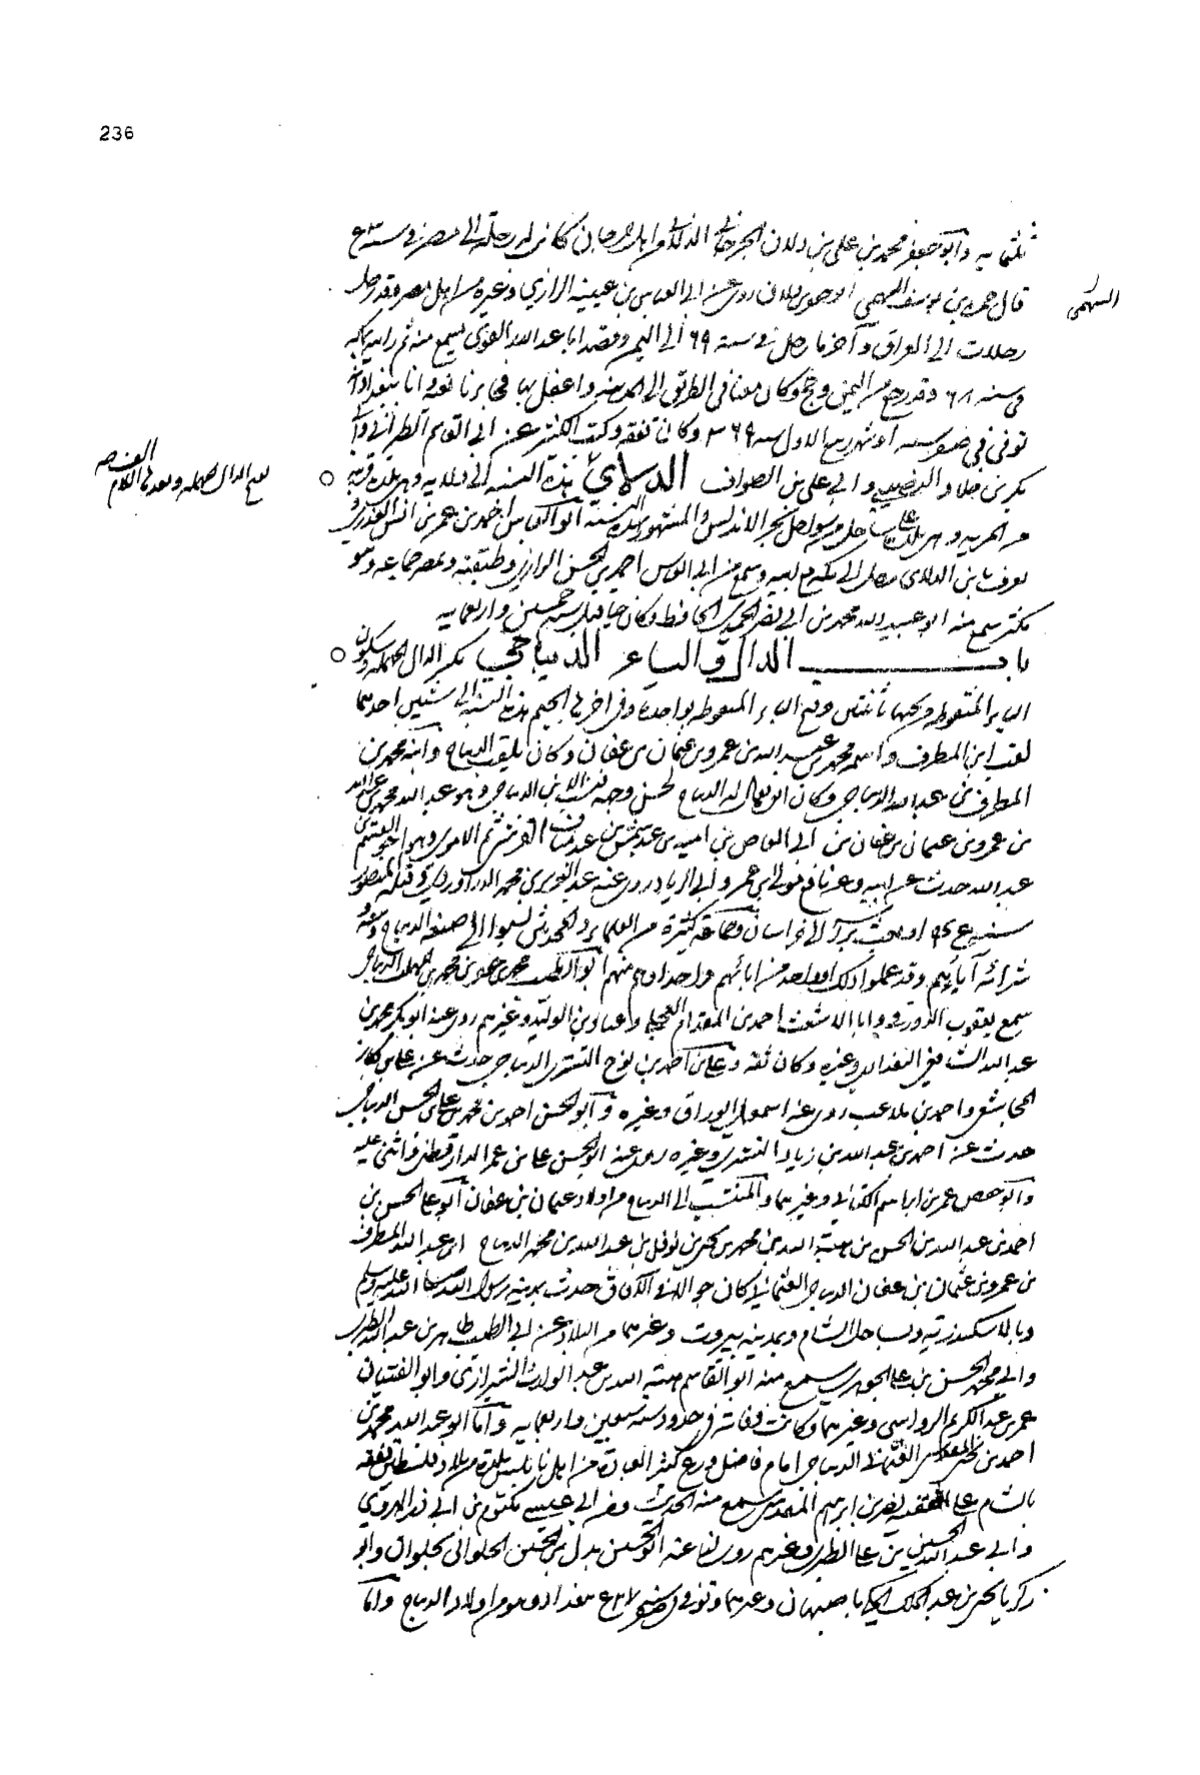 236
ثلثمايه وابو جعفر محمد بن على بن دلان الجرجاني الدلاني من اهل جرجان كانت له رحلة الى مصر في سنة
السهمي
قال حمزة بن يوسف السهمي ابو جعفر بن دلان روى عن ابي العباس بن عيينة الرازي وغيره من اهل مصر وقد رحل
رحلات الى العراق وآخر ما رحل في سنة ٦٩ الى اليمن وقصد ابا عبد الله النقوى ليسمع منه ثم رايته بمكة
في سنة ٦٨ وقد رجع من اليمن وحج وكان معنا في الطريق الى المدينة واعتل بها فجاءنا نعيه وانا ببغداد انه
توفي في صفر سنة او شهر ربيع الاول سنة ٣٦٩ وكان تفقه وكتب الكثير عن ابي القاسم الطبراني وابي
بكر بن خلاد النصيبي وابي على بن الصواف الدلايي هذه النسبة الى دلاية وهي بلدة قريبة
بفتح الدال المهملة وبعدها اللام الف
من المرية وهي بلدة على ساحل من سواحل بحر الاندلس والمشهور بهذه النسبة ابو العباس احمد بن عمر بن انس العذري
يعرف بابن الدلايي رحل الى مكة مع ابيه وسمع من ابي العباس احمد بن الحسن الرازي وطبقته وبمصر جماعة وهو
مكثر سمع منه ابو عبد الله محمد بن ابي نصر الحميدي الحافظ وكان حيا قبل سنة خمسين واربعمايه
باب الدال والياء الديباجي بكسر الدال المهملة وسكون
الياء المنقوطة من تحتها باثنتين وفتح الباء المنقوطة بواحدة وفي اخرها الجيم هذه النسبة الى شيئين احدهما
لقب ابن المطرف واسمه محمد بن عبد الله بن عمرو بن عثمان بن عفان وكان يلقب الديباج وابنه محمد بن
المطرف بن عبد الله الديباجي وكان ابوه يقال له الديباج لحسن وجهه فنسب الابن الى الديباج وهو عبد الله محمد بن عبد الله
بن عمرو بن عثمان بن عفان بن ابي العاص بن امية بن عبد شمس بن عبد مناف القرشي ثم الاموي وهو اخو القسم بن
عبد الله حدث عن ابيه وعن نافع مولى ابن عمر وابي الزناد روى عنه عبد العزيز بن محمد الدراوردي وقتله المنصور
سنة ١٤٥ وبعث براسه الى خراسان وجماعة كثيرة من العلماء والمحدثين نسبوا الى صنعة الديباج وبيعه و
شرائه آبائهم وقد عملوا ذلك او واحد من آبائهم واجدادهم منهم ابو الطيب محمد بن جعفر بن محمد بن المهلب الديباجي
سمع يعقوب الدورقي وابا الاشعث احمد بن المقدام العجلي وعباد بن الوليد وغيرهم روى عنه ابو بكر محمد بن
عبد الله الشافعي البغدادي وغيره وكان ثقة وعلي بن احمد بن نوح التستري الديباجي حدث عن علي بن بكار
المجاشعي واحمد بن ملاعب روى عنه اسمعيل الوراق وغيره وابو الحسن احمد بن محمد بن علي بن الحسن الديباجي
حدث عن احمد بن عبد الله بن زياد التستري وغيره روى عنه ابو الحسن علي بن عمر الدارقطني واثنى عليه
وابو حفص عمر بن ابراهيم الكتاني وغيرهما والمنتسب الى الديباج من اولاد عثمان بن عفان ابو علي الحسن بن
احمد بن عبد الله بن الحسن بن هبة الله بن محمد بن يحيى بن نوفل بن عبد الله بن محمد الديباج ابن عبد الله المطرف
بن عمرو بن عثمان بن عفان الديباجي العثماني كان جوالا في الآفاق حدث بمدينة رسول الله صلى الله عليه وسلم
وبالاسكندرية وبساحل الشام وبمدينة بيروت وغيرهما من البلاد عن ابي الطيب طاهر بن عبد الله الطبري
وابي محمد الحسن بن علي الجوهري سمع منه ابو القاسم هبة الله بن عبد الوارث الشيرازي وابو الفتيان
عمر بن عبد الكريم الرواسي وغيرهما وكانت وفاته في حدود سنة سبعين واربعمايه واما ابو عبد الله محمد بن
احمد بن يحيى العثماني الديباجي امام فاضل ورع كثير العبادة من اهل نابلس بلدة من بلاد فلسطين تفقه
بالشام على الفقيه نصر بن ابراهيم المقدسي سمع منه الحديث ومن ابي عيسى مكتوم بن ابي ذر الهروي
وابي عبد الله الحسين بن علي الطبري وغيرهم روى لنا عنه ابو الحسين بدل بن الحسين الحلواني بحلوان وابو
زكريا يحيى بن عبد الملك المكي باصبهان وغيرهما وتوفي في صفر سنة ببغداد وهو من اولاد الديباج واما